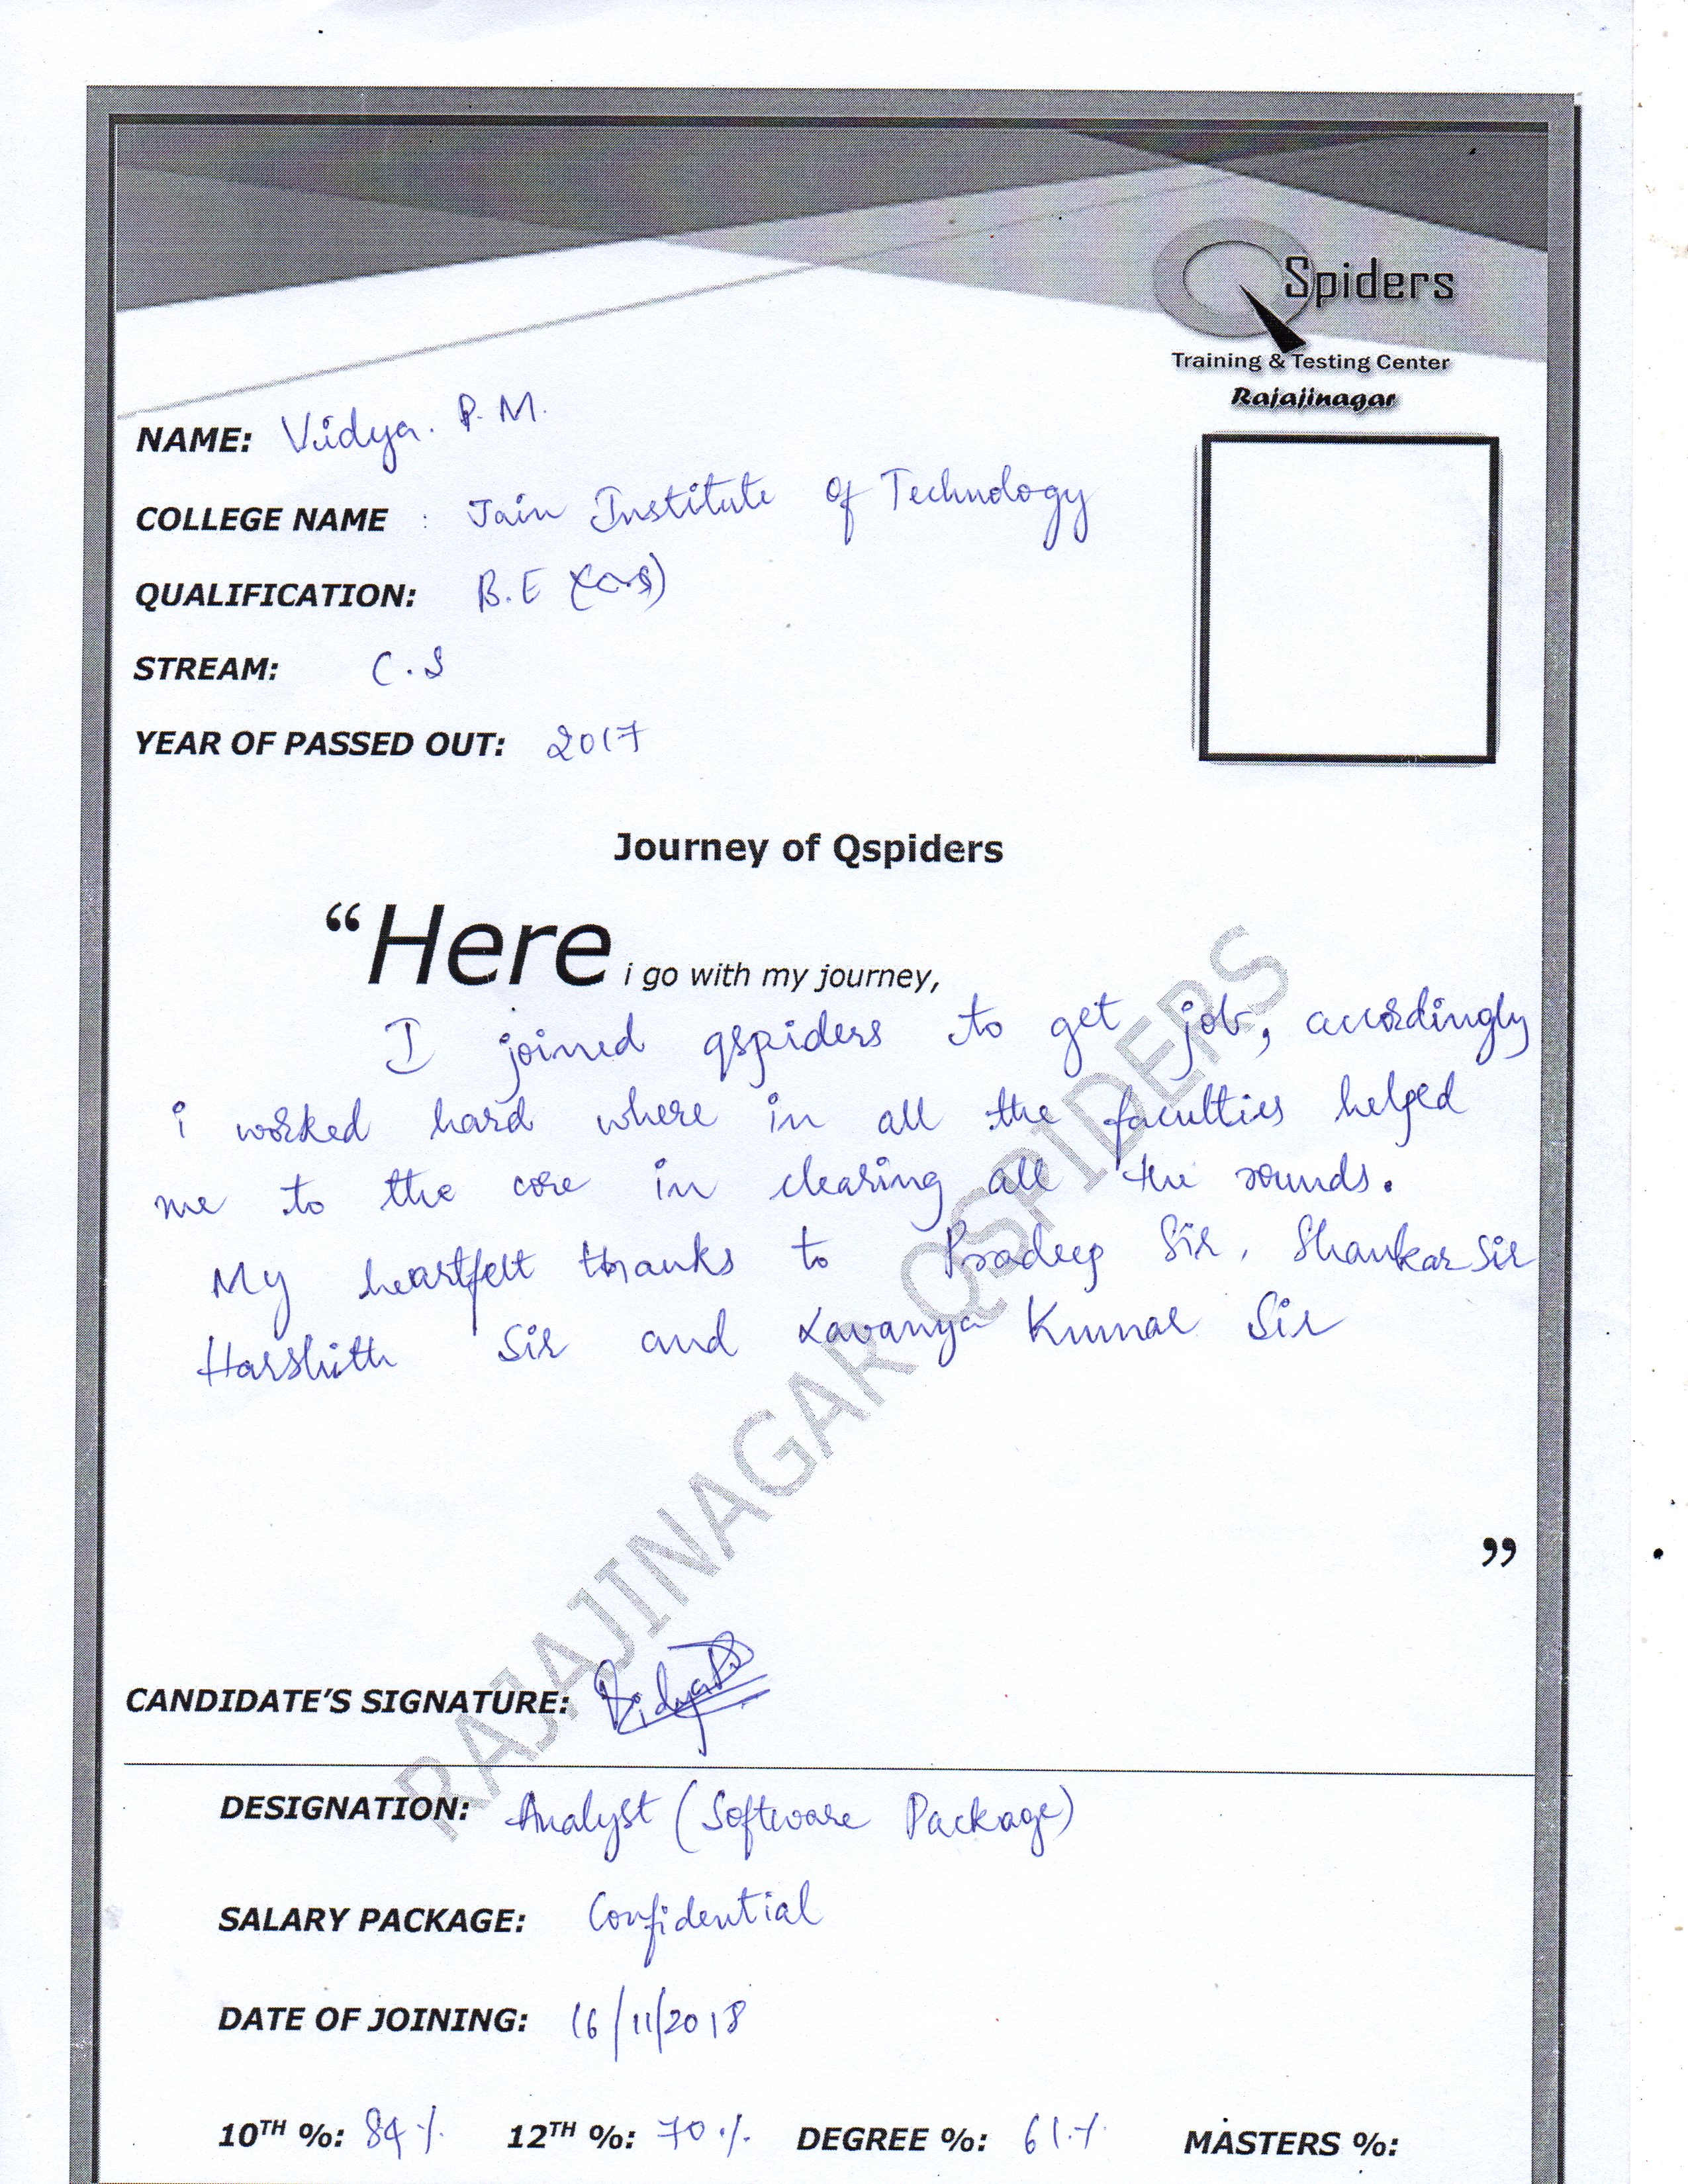 Spiders
Training & Testing Center
Rajajinagar
NAME: Vidya. P. M.
COLLEGE NAME : Jain Institute of Technology
QUALIFICATION: B.E
STREAM: C.S
YEAR OF PASSED OUT: 2017
Journey of Qspiders
“Here i go with my journey,
I joined qspiders to get job, accordingly
i worked hard where in all the faculties helped
me to the core in clearing all the rounds.
My heartfelt thanks to Pradeep Sir, Shankar Sir
Harshith Sir and Lavanya Kumar Sir
”
RAJAJINAGAR QSPIDERS
CANDIDATE’S SIGNATURE:
DESIGNATION: Analyst (Software Package)
SALARY PACKAGE: Confidential
DATE OF JOINING: 16/11/2018
10TH %: 84 % 12TH %: 70 % DEGREE %: 61 % MASTERS %: